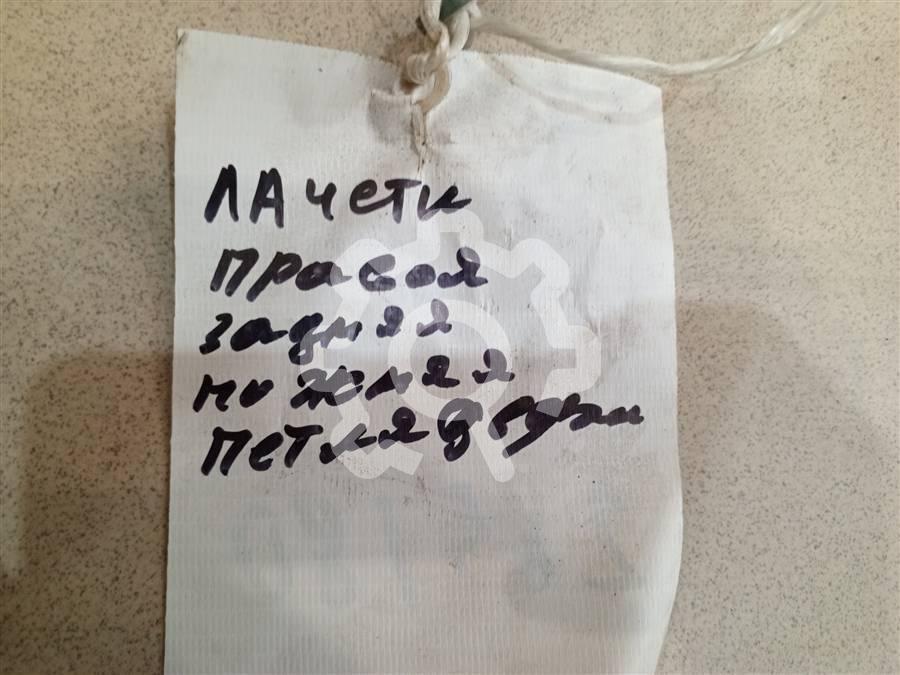 ЛАчети
правоя
задняя
нижняя
петля двери